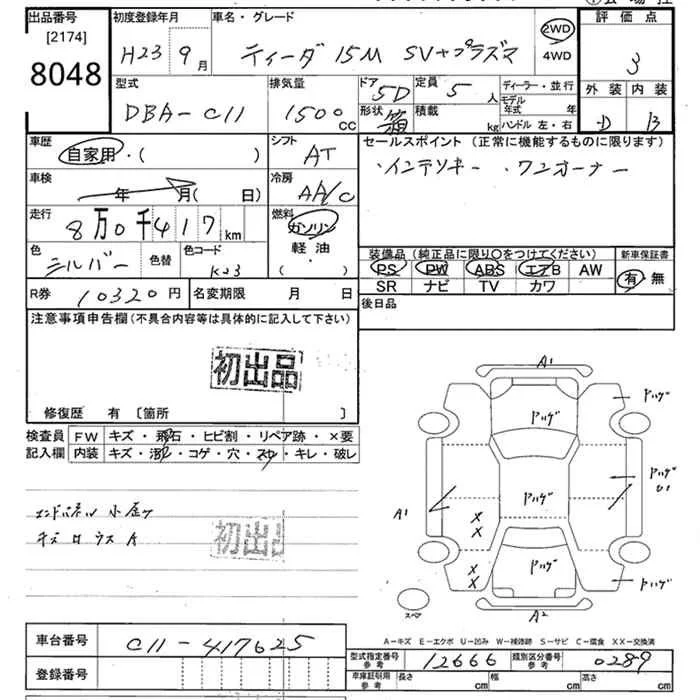 出品番号 初度登録年月 車名・グレード 評価点
[2174]
8048
H23 9月 ティーダ 15M SV+プラズマ 2WD 4WD 3
型式 排気量 ドア 5D 定員 5人 ディーラー・並行 外装 内装
DBA-C11 1500CC 形状 箱 積載 kg モデル年式 年 D B
ハンドル 左・右
車歴 自家用・( ) シフト AT セールスポイント (正常に機能するものに限ります)
・インテリキー ・ワンオーナー
車検 年 月( 日) 冷房 AA/C
走行 8万0千417km 燃料 ガソリン 軽・油 ・( )
色 シルバー 色替 色コード K23
装備品 (純正品に限り○をつけてください) 新車保証書
PS PW ABS エアB AW 有・無
SR ナビ TV カワ
R券 10320円 名変期限 月 日 後日品
注意事項申告欄 (不具合内容等は具体的に記入して下さい)
初出品
修復歴 有 〔箇所 〕
検査員 FW キズ・飛石・ヒビ割・リペア跡・×要
記入欄 内装 キズ・汚・コゲ・穴・スレ・キレ・破レ
A1
ハガレ
ハガレ
ハガレ
ハガレ
U1
A1
X
X
X
X
ハガレ
ハガレ
A2
スペア
エンドパネル 小歪
初出品
A-キズ E-エクボ U-凹み W-補修跡 S-サビ C-腐食 XX-交換済
車台番号 C11-417625
型式指定番号 参考 12666 類別区分番号 参考 0289
登録番号
車庫証明用 参考 長さ cm 幅 cm 高さ cm